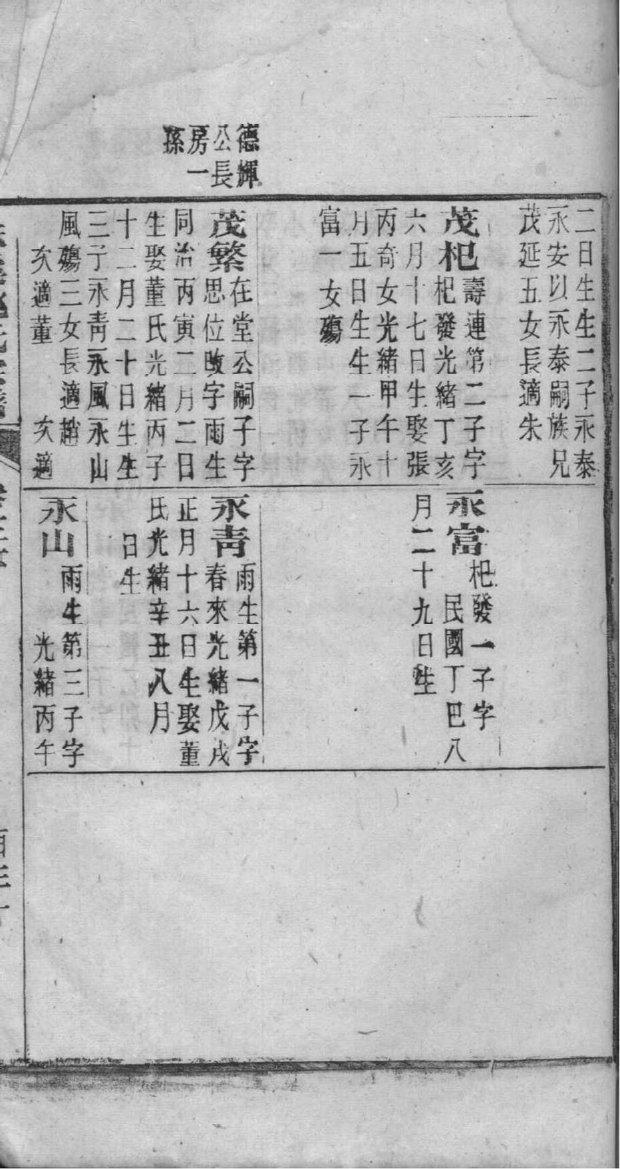 德輝
公長
房一
孫
二日生生二子永泰
永安以永泰嗣族兄
茂延五女長適朱
茂杞壽連第二子字
杞發光緒丁亥
六月十七日生娶張
丙奇女光緒甲午十
月五日生生一子永
富一女殤
茂繁在堂公嗣子字
思位改字雨生
同治丙寅三月二日
生娶董氏光緒丙子
十二月二十日生生
三子永靑永風永山
風殤三女長適趙
次適董 次適
永富杞發一子字
民國丁巳八
月二十九日生
永靑雨生第一子字
春來光緒戊戌
正月十六日生娶董
氏光緒辛丑八月
日生
永山雨生第三子字
光緒丙午